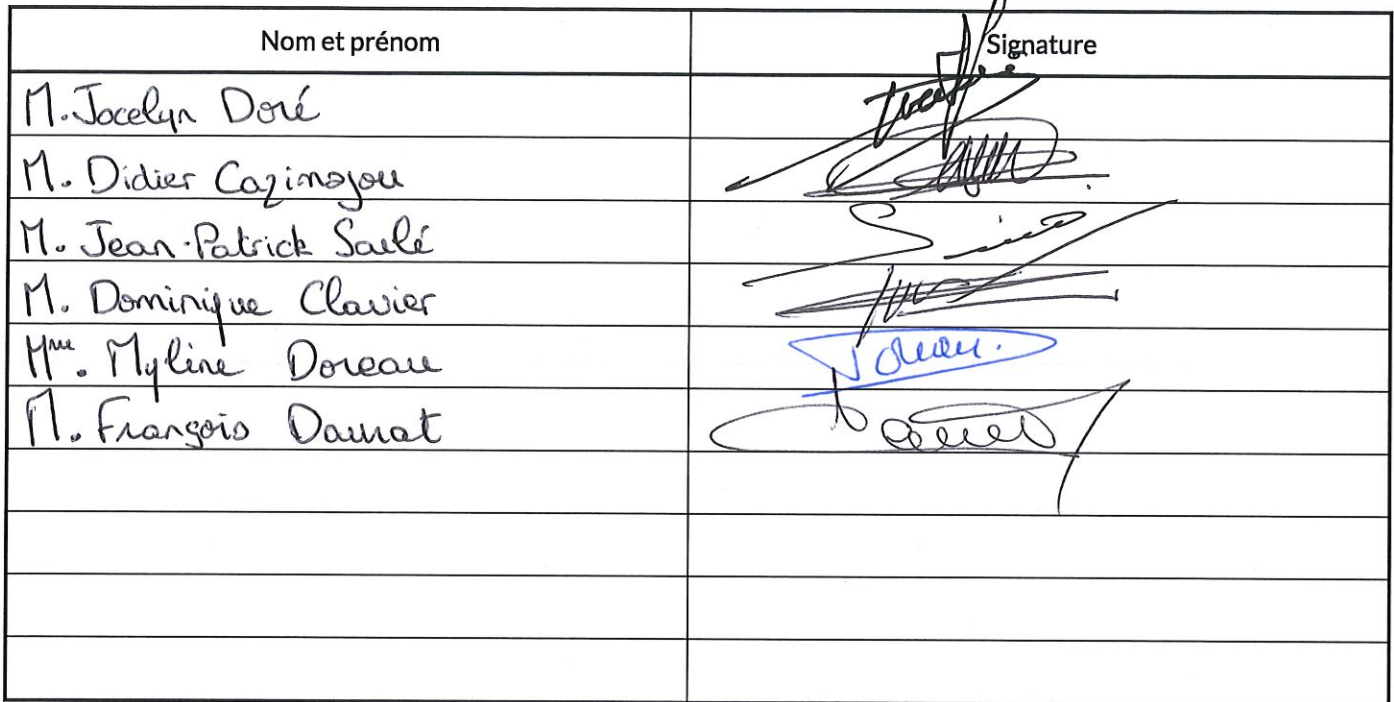 Nom et prénom Signature
M. Jocelyn Doré
M. Didier Cazimajou
M. Jean-Patrick Sailé
M. Dominique Clavier
Mme. Myline Doreau
M. François Daurat